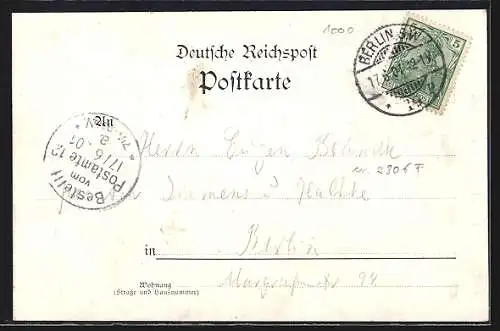 1000
Deutsche Reichspost
Postkarte
BERLIN S.W.
17.6.01
5
An
Bestellt
vom
Postamte 12
17/6.01
Herrn Eugen
Siemens u Halske
in Berlin
Markgrafenstr 94
Wohnung
(Straße und Hausnummer)